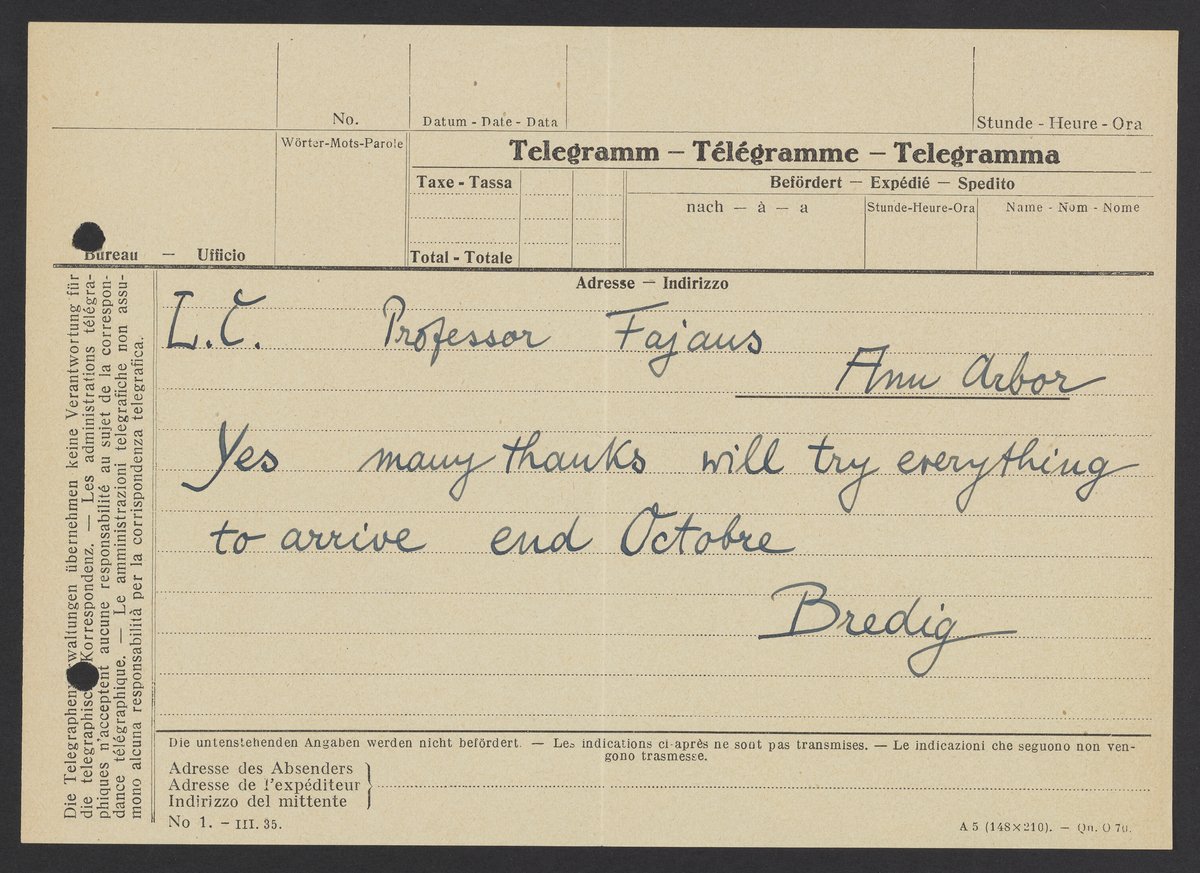 No.
Datum - Date - Data
Stunde - Heure - Ora
Wörter-Mots-Parole
Telegramm — Télégramme — Telegramma
Taxe - Tassa
Befördert — Expédié — Spedito
nach — à — a
Stunde-Heure-Ora
Name - Nom - Nome
Bureau — Ufficio
Total - Totale
Adresse — Indirizzo
L.C. Professor Fajans
Ann Arbor
Yes many thanks will try everything
to arrive end Octobre
Bredig
Die Telegraphenverwaltungen übernehmen keine Verantwortung für
die telegraphische Korrespondenz. — Les administrations télégra-
phiques n'acceptent aucune responsabilité au sujet de la correspon-
dance télégraphique. — Le amministrazioni telegrafiche non assu-
mono alcuna responsabilità per la corrispondenza telegrafica.
Die untenstehenden Angaben werden nicht befördert. — Les indications ci-après ne sont pas transmises. — Le indicazioni che seguono non ven-
gono trasmesse.
Adresse des Absenders
Adresse de l'expéditeur
Indirizzo del mittente
No 1. – III. 35.
A 5 (148×210). — Qn. O 70.